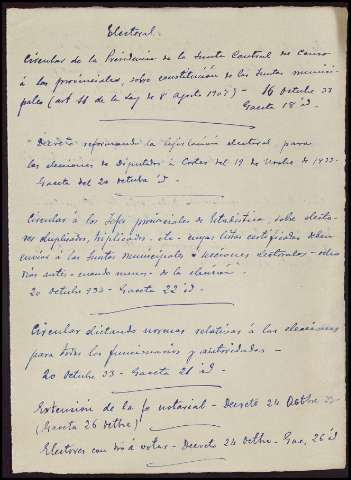 Electoral.
Circular de la Presidencia de la Junta Central del Censo
á las provinciales, sobre constitución de las Juntas munici-
pales (art 11 de la Ley de 8 agosto 1907) - 16 octubre 33
Gaceta 18 id
Decreto reformando la legislación electoral para
las elecciones de Diputados á Cortes del 19 de Novbre de 1933.
Gaceta del 20 octubre id.
Circular á los Jefes provinciales de Estadística, sobre electo-
res duplicados, triplicados, etc - cuyas listas certificadas deben
enviar á las Juntas municipales á secciones electorales - ocho
días antes - cuando menos - de la elección.
20 octubre 933 - Gaceta 22 id -
Circular dictando normas relativas á las elecciones
para todos los funcionarios y autoridades -
20 octubre 33 - Gaceta 21 id -
Extensión de la fe notarial - Decreto 24 Octbre 33
(Gaceta 26 octbre)
Electores con dro á votar - Decreto 24 octbre - Gac. 26 id